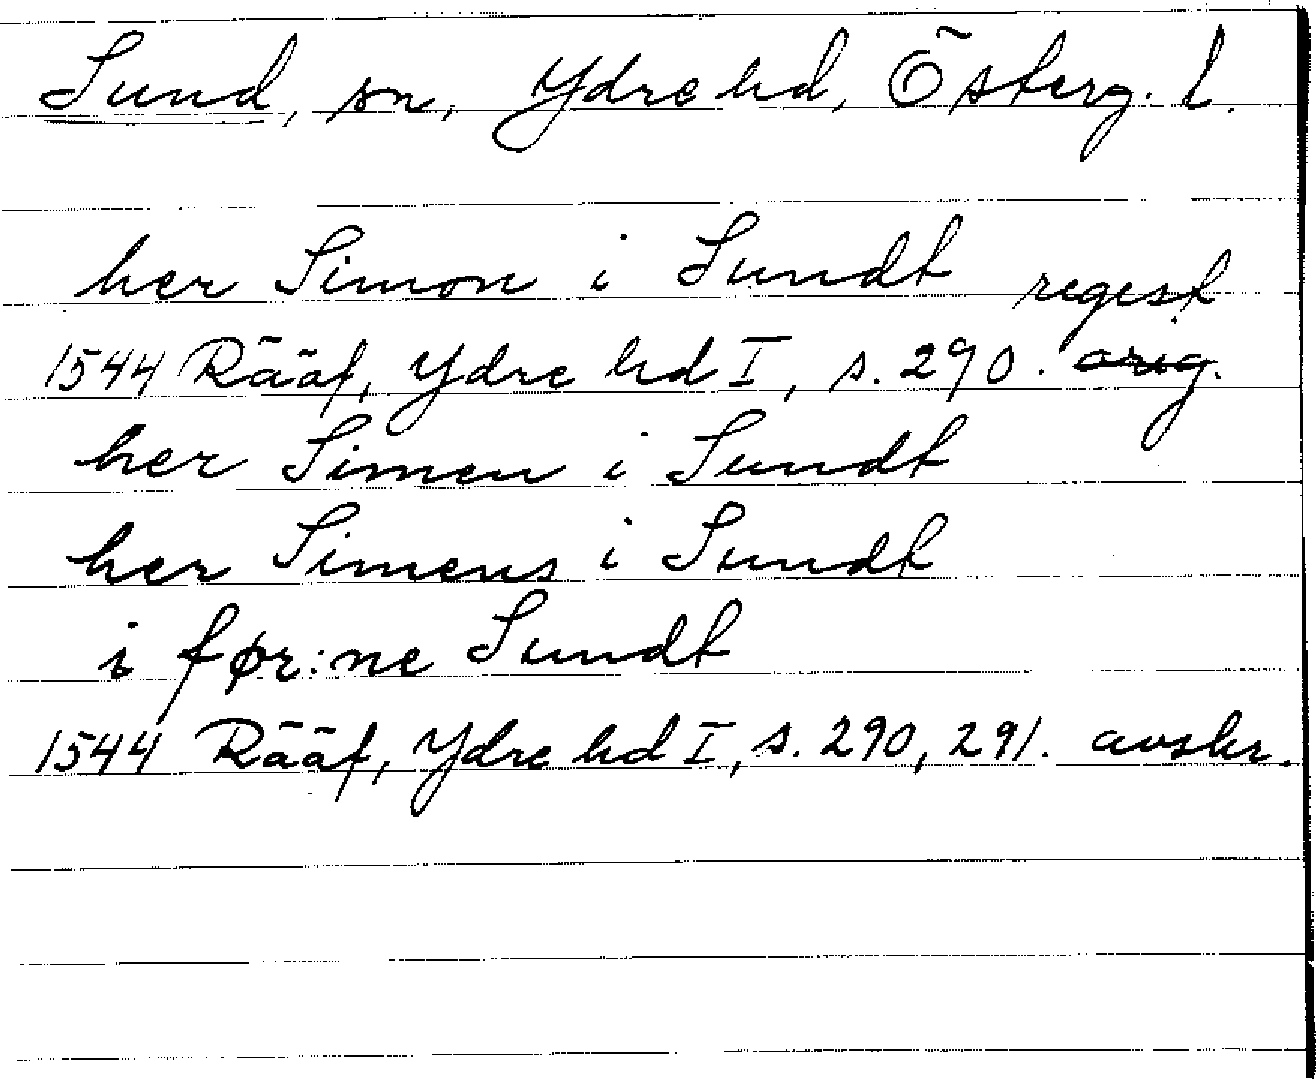 Sund, sn, Ydre hd, Österg. l.
her Simon i Sundt regest
1544 Rääf, Ydre hd I, s. 290. orig.
her Simen i Sundt
her Simens i Sundt
i før:ne Sundt
1544 Rääf, Ydre hd I, s. 290, 291. avskr.